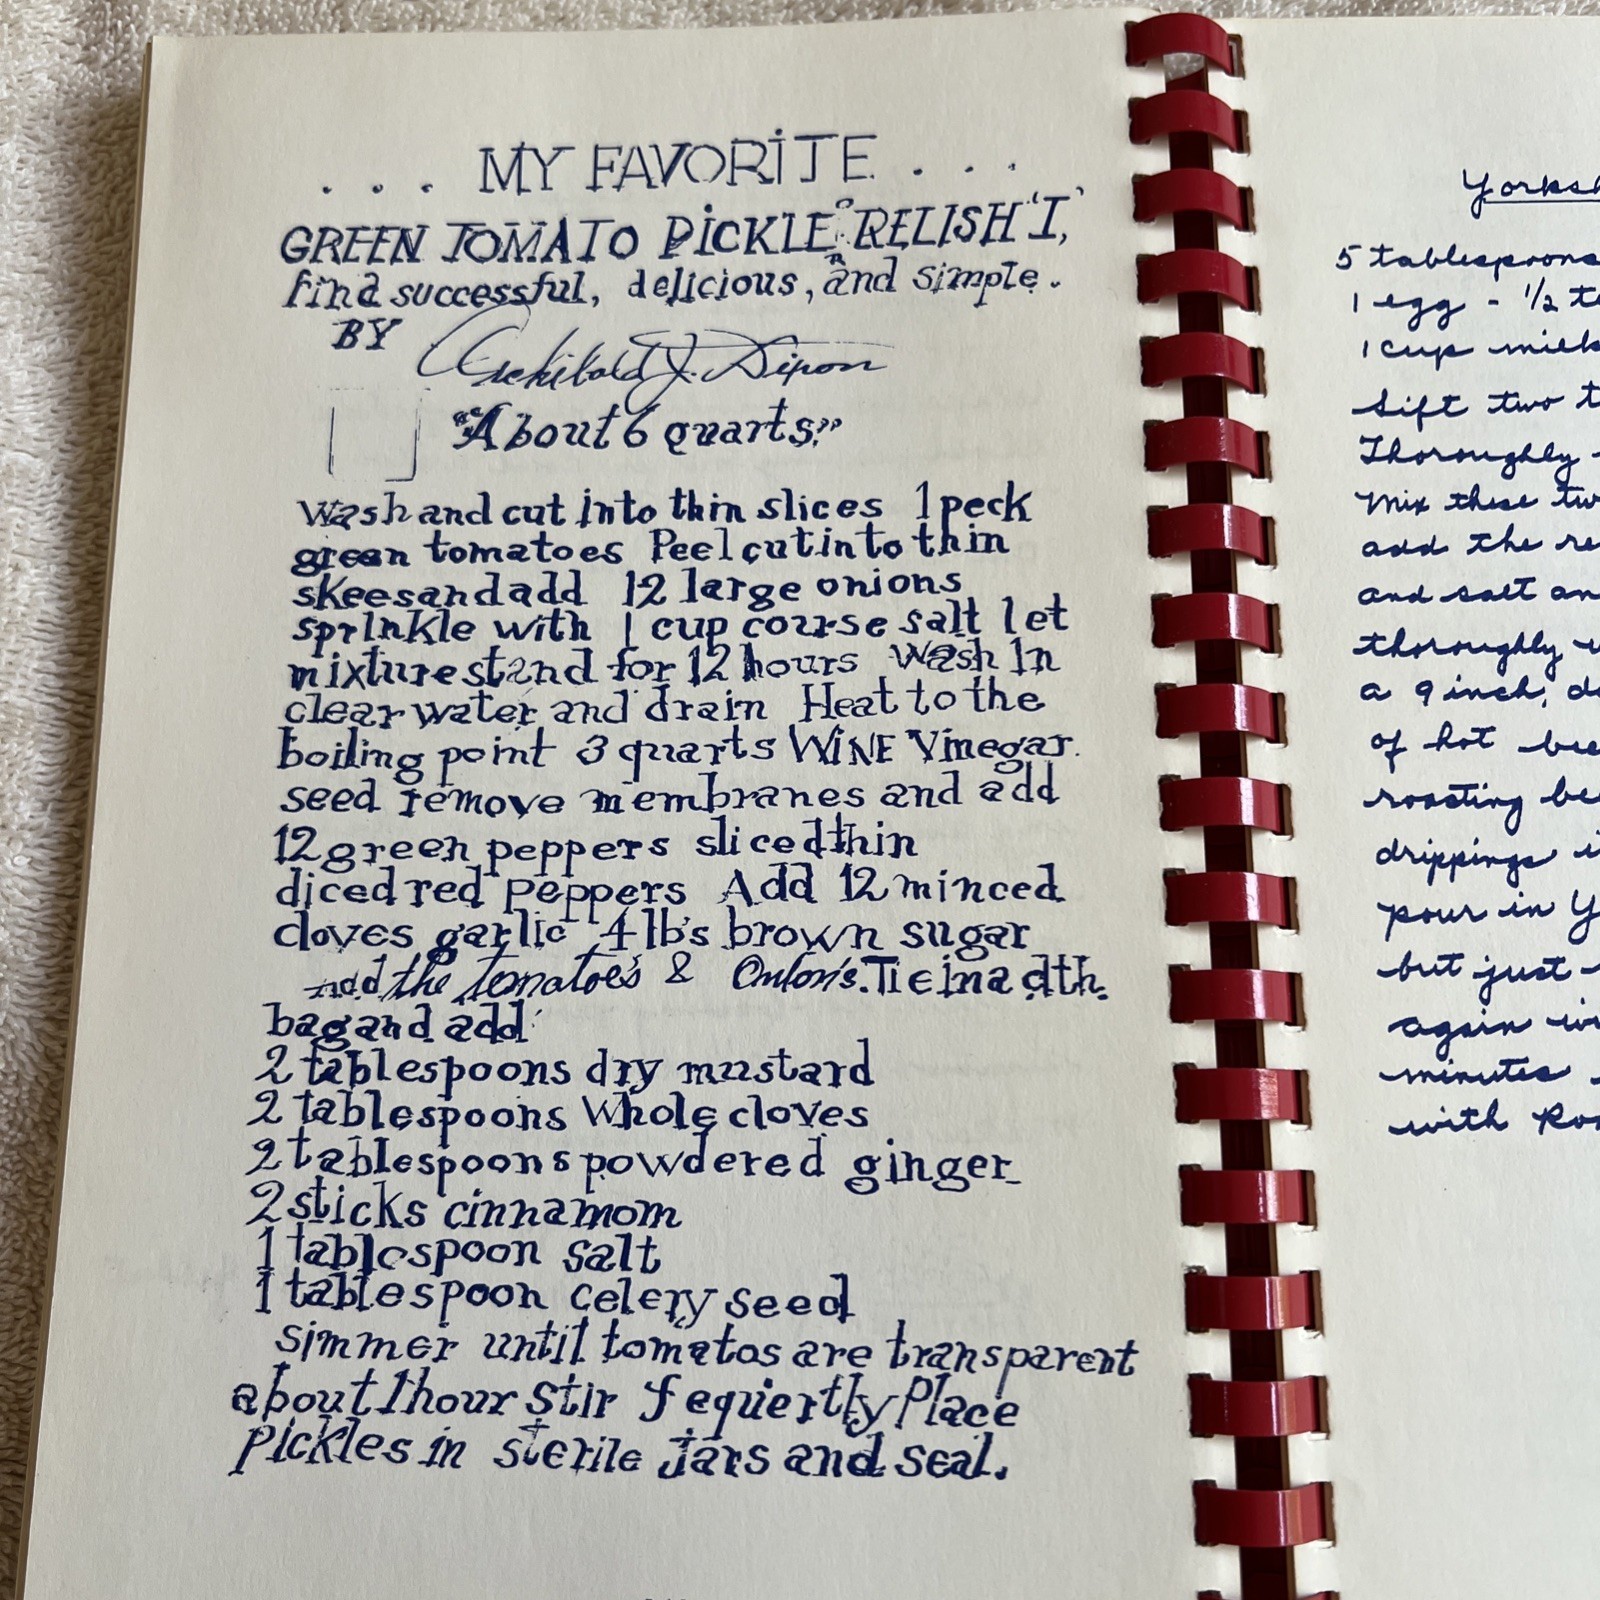 . . . MY FAVORITE . . .
GREEN TOMATO PICKLE RELISH 'I,
find successful, delicious, and simple.
BY Archibald J. Dixon
"About 6 quarts."
Wash and cut into thin slices 1 peck
green tomatoes Peel cut into thin
skees and add 12 large onions
sprinkle with 1 cup course salt let
mixture stand for 12 hours Wash In
clear water and drain Heat to the
boiling point 3 quarts WINE Vinegar.
seed remove membranes and add
12 green peppers sliced thin
diced red peppers Add 12 minced
cloves garlic 4 lb's brown sugar
Add the tomatoe's & Onion's. Tie in a clth.
bag and add
2 tablespoons dry mustard
2 tablespoons Whole cloves
2 tablespoons powdered ginger
2 sticks cinnamom
1 tablespoon salt
1 tablespoon celery seed
simmer until tomatos are transparent
about 1 hour Stir fequiertly Place
Pickles in sterile jars and seal.
Yorksh
5 tablespoons
1 egg - 1/2 te
1 cup milk
Sift two t
Thoroughly
Mix these tw
add the re
and salt an
thoroughly
a 9 inch, d
of hot bee
roasting be
drippings i
pour in Y
but just
again wi
minutes
with Roa